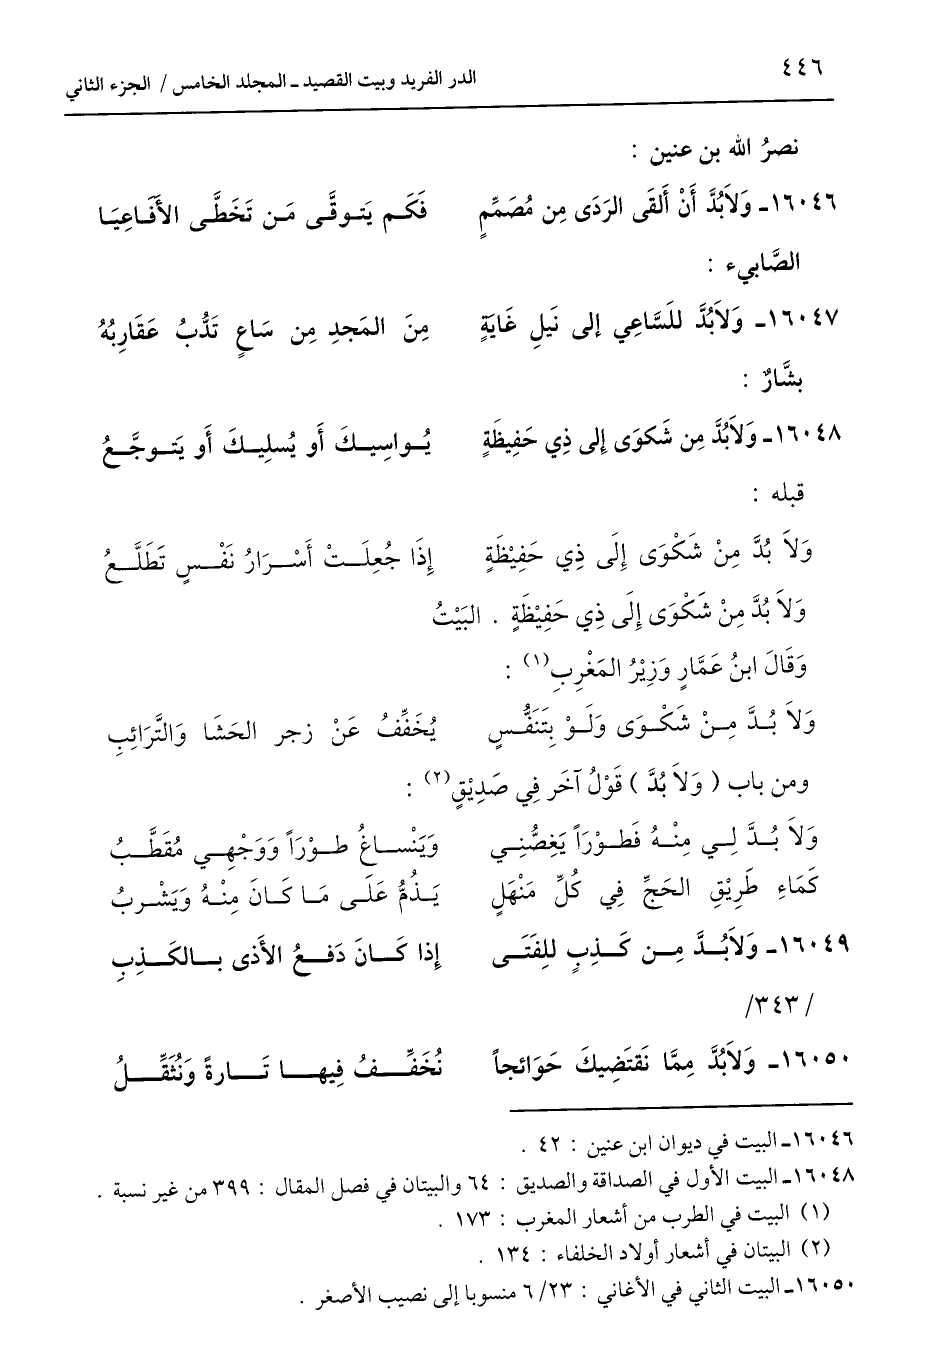 ٤٤٦
الدر الفريد وبيت القصيد ـ المجلد الخامس / الجزء الثاني
نصرُ الله بن عنين :
١٦٠٤٦ـ وَلاَبُدَّ أَنْ أَلقَى الرَدَى مِن مُصَمِّمٍ فَكَم يَتوقَّى مَن تَخَطَّى الأَفَاعِيَا
الصَّابيء :
١٦٠٤٧ـ وَلاَبُدَّ للَسَّاعِي إلى نَيلِ غَايَةٍ مِنَ المَجدِ مِن سَاعٍ تَدُّبُ عَقَارِبُهُ
بشَّارٌ :
١٦٠٤٨ـ وَلاَبُدَّ مِن شَكوَى إلى ذِي حَفِيظَةٍ يُواسِيكَ أَو يُسلِيكَ أَو يَتوجَّعُ
قبله :
وَلاَ بُدَّ مِنْ شَكْوَى إِلَى ذِي حَفِيْظَةٍ إِذَا جُعِلَتْ أَسْرَارُ نَفْسٍ تَطَلَّعُ
وَلاَ بُدَّ مِنْ شَكْوَى إِلَى ذِي حَفِيْظَةٍ . البَيْتُ
وَقَالَ ابنُ عَمَّارٍ وَزِيْرُ المَغْرِبِ(١) :
وَلاَ بُدَّ مِنْ شَكْوَى وَلَوْ بِتَنَفُّسٍ يُخَفِّفُ عَنْ زجر الحَشَا وَالتَّرَائِبِ
ومن باب ( وَلاَ بُدَّ ) قَوْلُ آخَر فِي صَدِيْقٍ(٢) :
وَلاَ بُدَّ لِي مِنْهُ فَطوْرَاً يَغِصُّنِي وَيَنْسَاغُ طوْرَاً وَوَجْهِي مُقَطَّبُ
كَمَاءِ طَرِيْقِ الحَجِّ فِي كُلِّ مَنْهَلٍ يَذُمُّ عَلَى مَا كَانَ مِنْهُ وَيَشْرِبُ
١٦٠٤٩ـ وَلاَبُدَّ مِن كَذِبٍ للِفَتَى إذا كَانَ دَفعُ الأَذى بالكَذِبِ
/٣٤٣/
١٦٠٥٠ـ وَلاَبُدَّ مِمَّا نَقتَضِيكَ حَوَائجاً نُخَفِّفُ فِيها تَارةً وَنُثَقِّلُ
١٦٠٤٦ـ البيت في ديوان ابن عنين : ٤٢ .
١٦٠٤٨ـ البيت الأول في الصداقة والصديق : ٦٤ والبيتان في فصل المقال : ٣٩٩ من غير نسبة .
(١) البيت في الطرب من أشعار المغرب : ١٧٣ .
(٢) البيتان في أشعار أولاد الخلفاء : ١٣٤ .
١٦٠٥٠ـ البيت الثاني في الأغاني : ٢٣/ ٦ منسوبا إلى نصيب الأصغر .